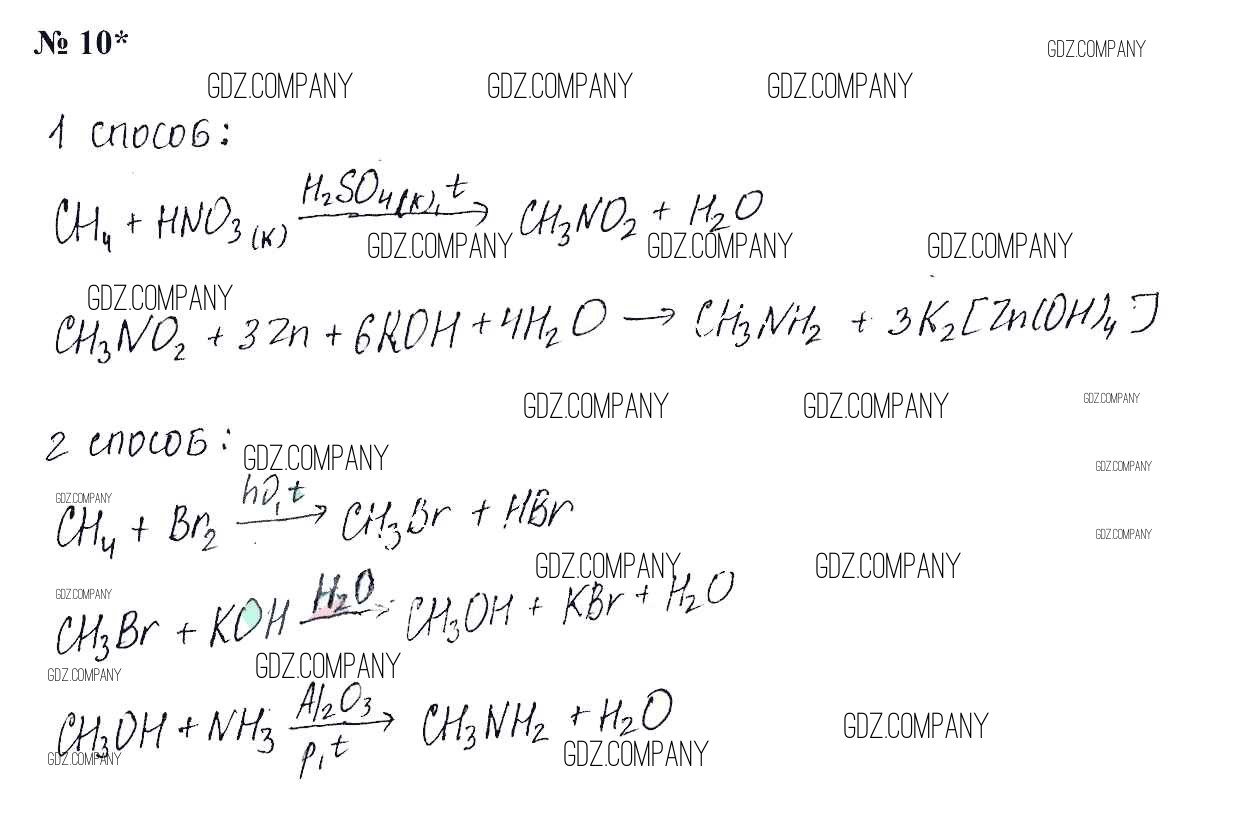 № 10*
GDZ.COMPANY
GDZ.COMPANY GDZ.COMPANY GDZ.COMPANY
1 способ:
CH₄ + HNO₃(к) H₂SO₄(к), t → CH₃NO₂ + H₂O
GDZ.COMPANY GDZ.COMPANY GDZ.COMPANY
GDZ.COMPANY
CH₃NO₂ + 3Zn + 6KOH + 4H₂O → CH₃NH₂ + 3K₂[Zn(OH)₄]
GDZ.COMPANY GDZ.COMPANY GDZ.COMPANY
2 способ:
GDZ.COMPANY GDZ.COMPANY
GDZ.COMPANY
CH₄ + Br₂ hν, t → CH₃Br + HBr
GDZ.COMPANY
GDZ.COMPANY GDZ.COMPANY
GDZ.COMPANY
CH₃Br + KOH H₂O → CH₃OH + KBr + H₂O
GDZ.COMPANY GDZ.COMPANY
CH₃OH + NH₃ Al₂O₃ → p, t CH₃NH₂ + H₂O
GDZ.COMPANY GDZ.COMPANY GDZ.COMPANY